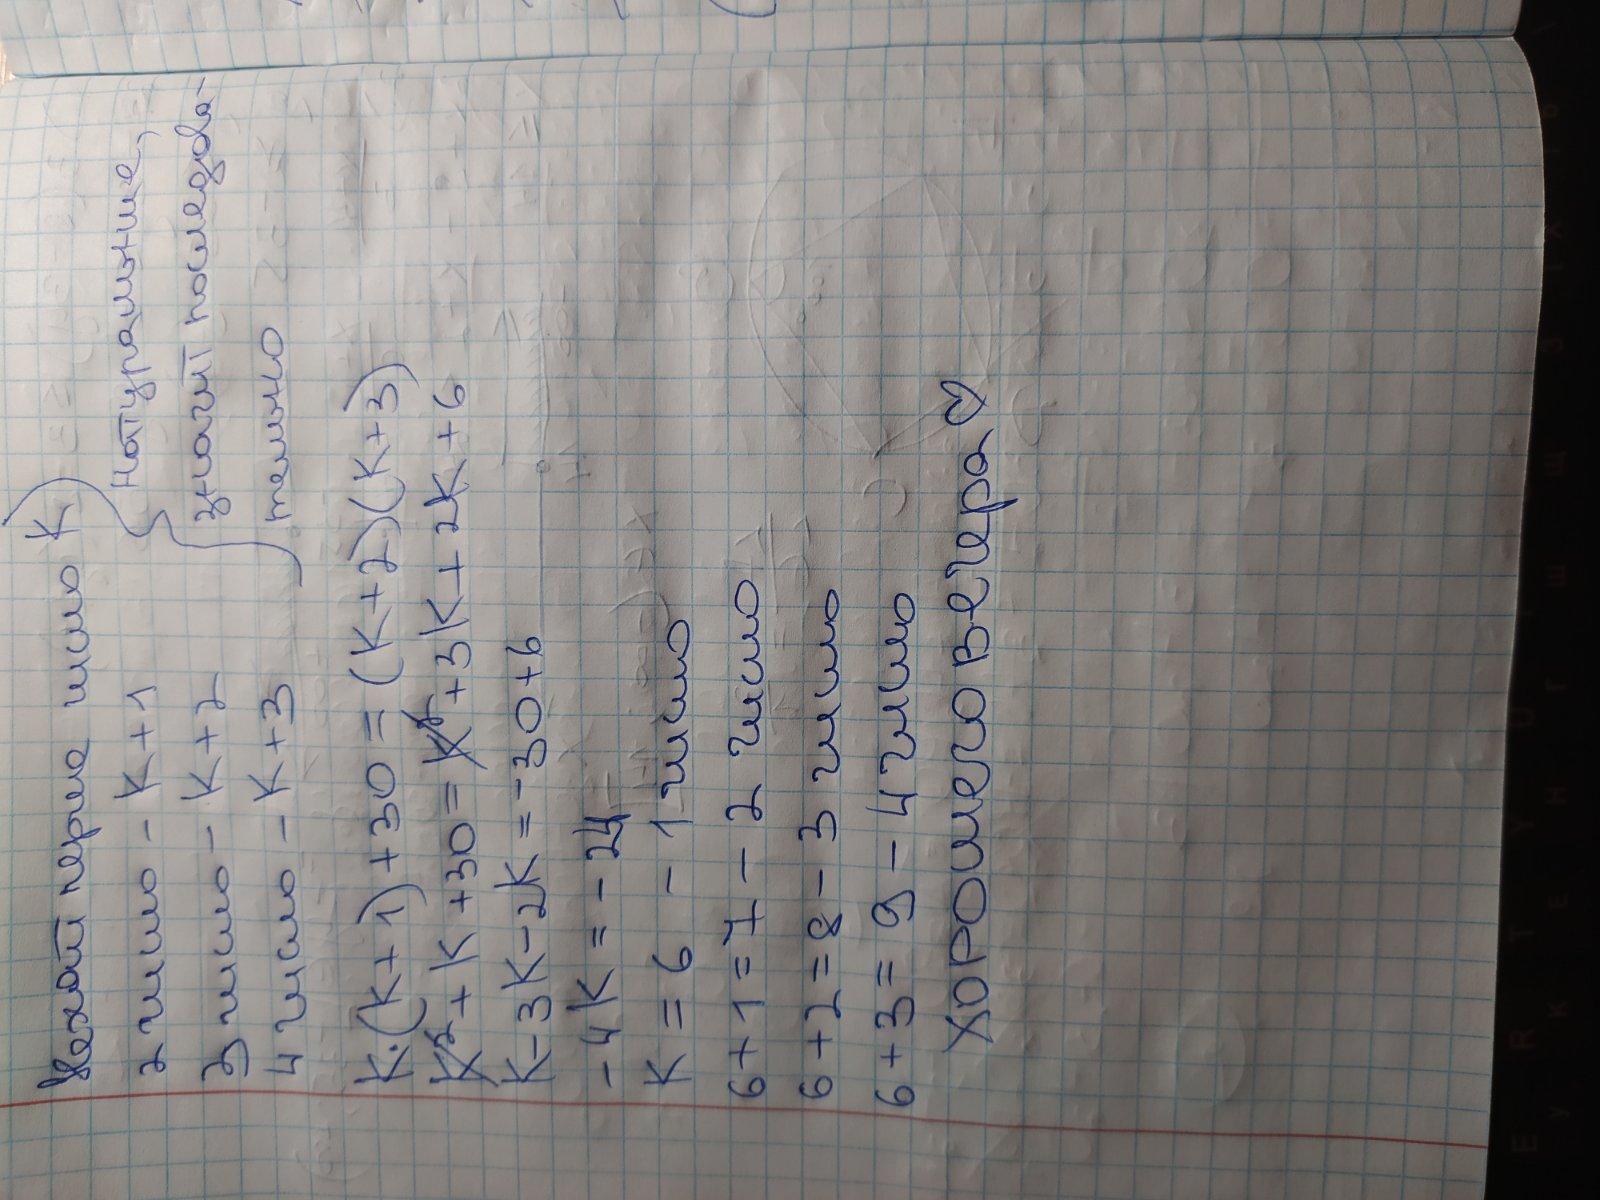 Нехай перше число К
2 число - К+1
3 число - К+2
4 число - К+3
натуральние,
значит последова-
тельно
К·(К+1)+30=(К+2)(К+3)
К²+К+30=К²+3К+2К+6
К-3К-2К=-30+6
-4К=-24
К=6 - 1 число
6+1=7 - 2 число
6+2=8 - 3 число
6+3=9 - 4 число
Хорошего вечера ♡